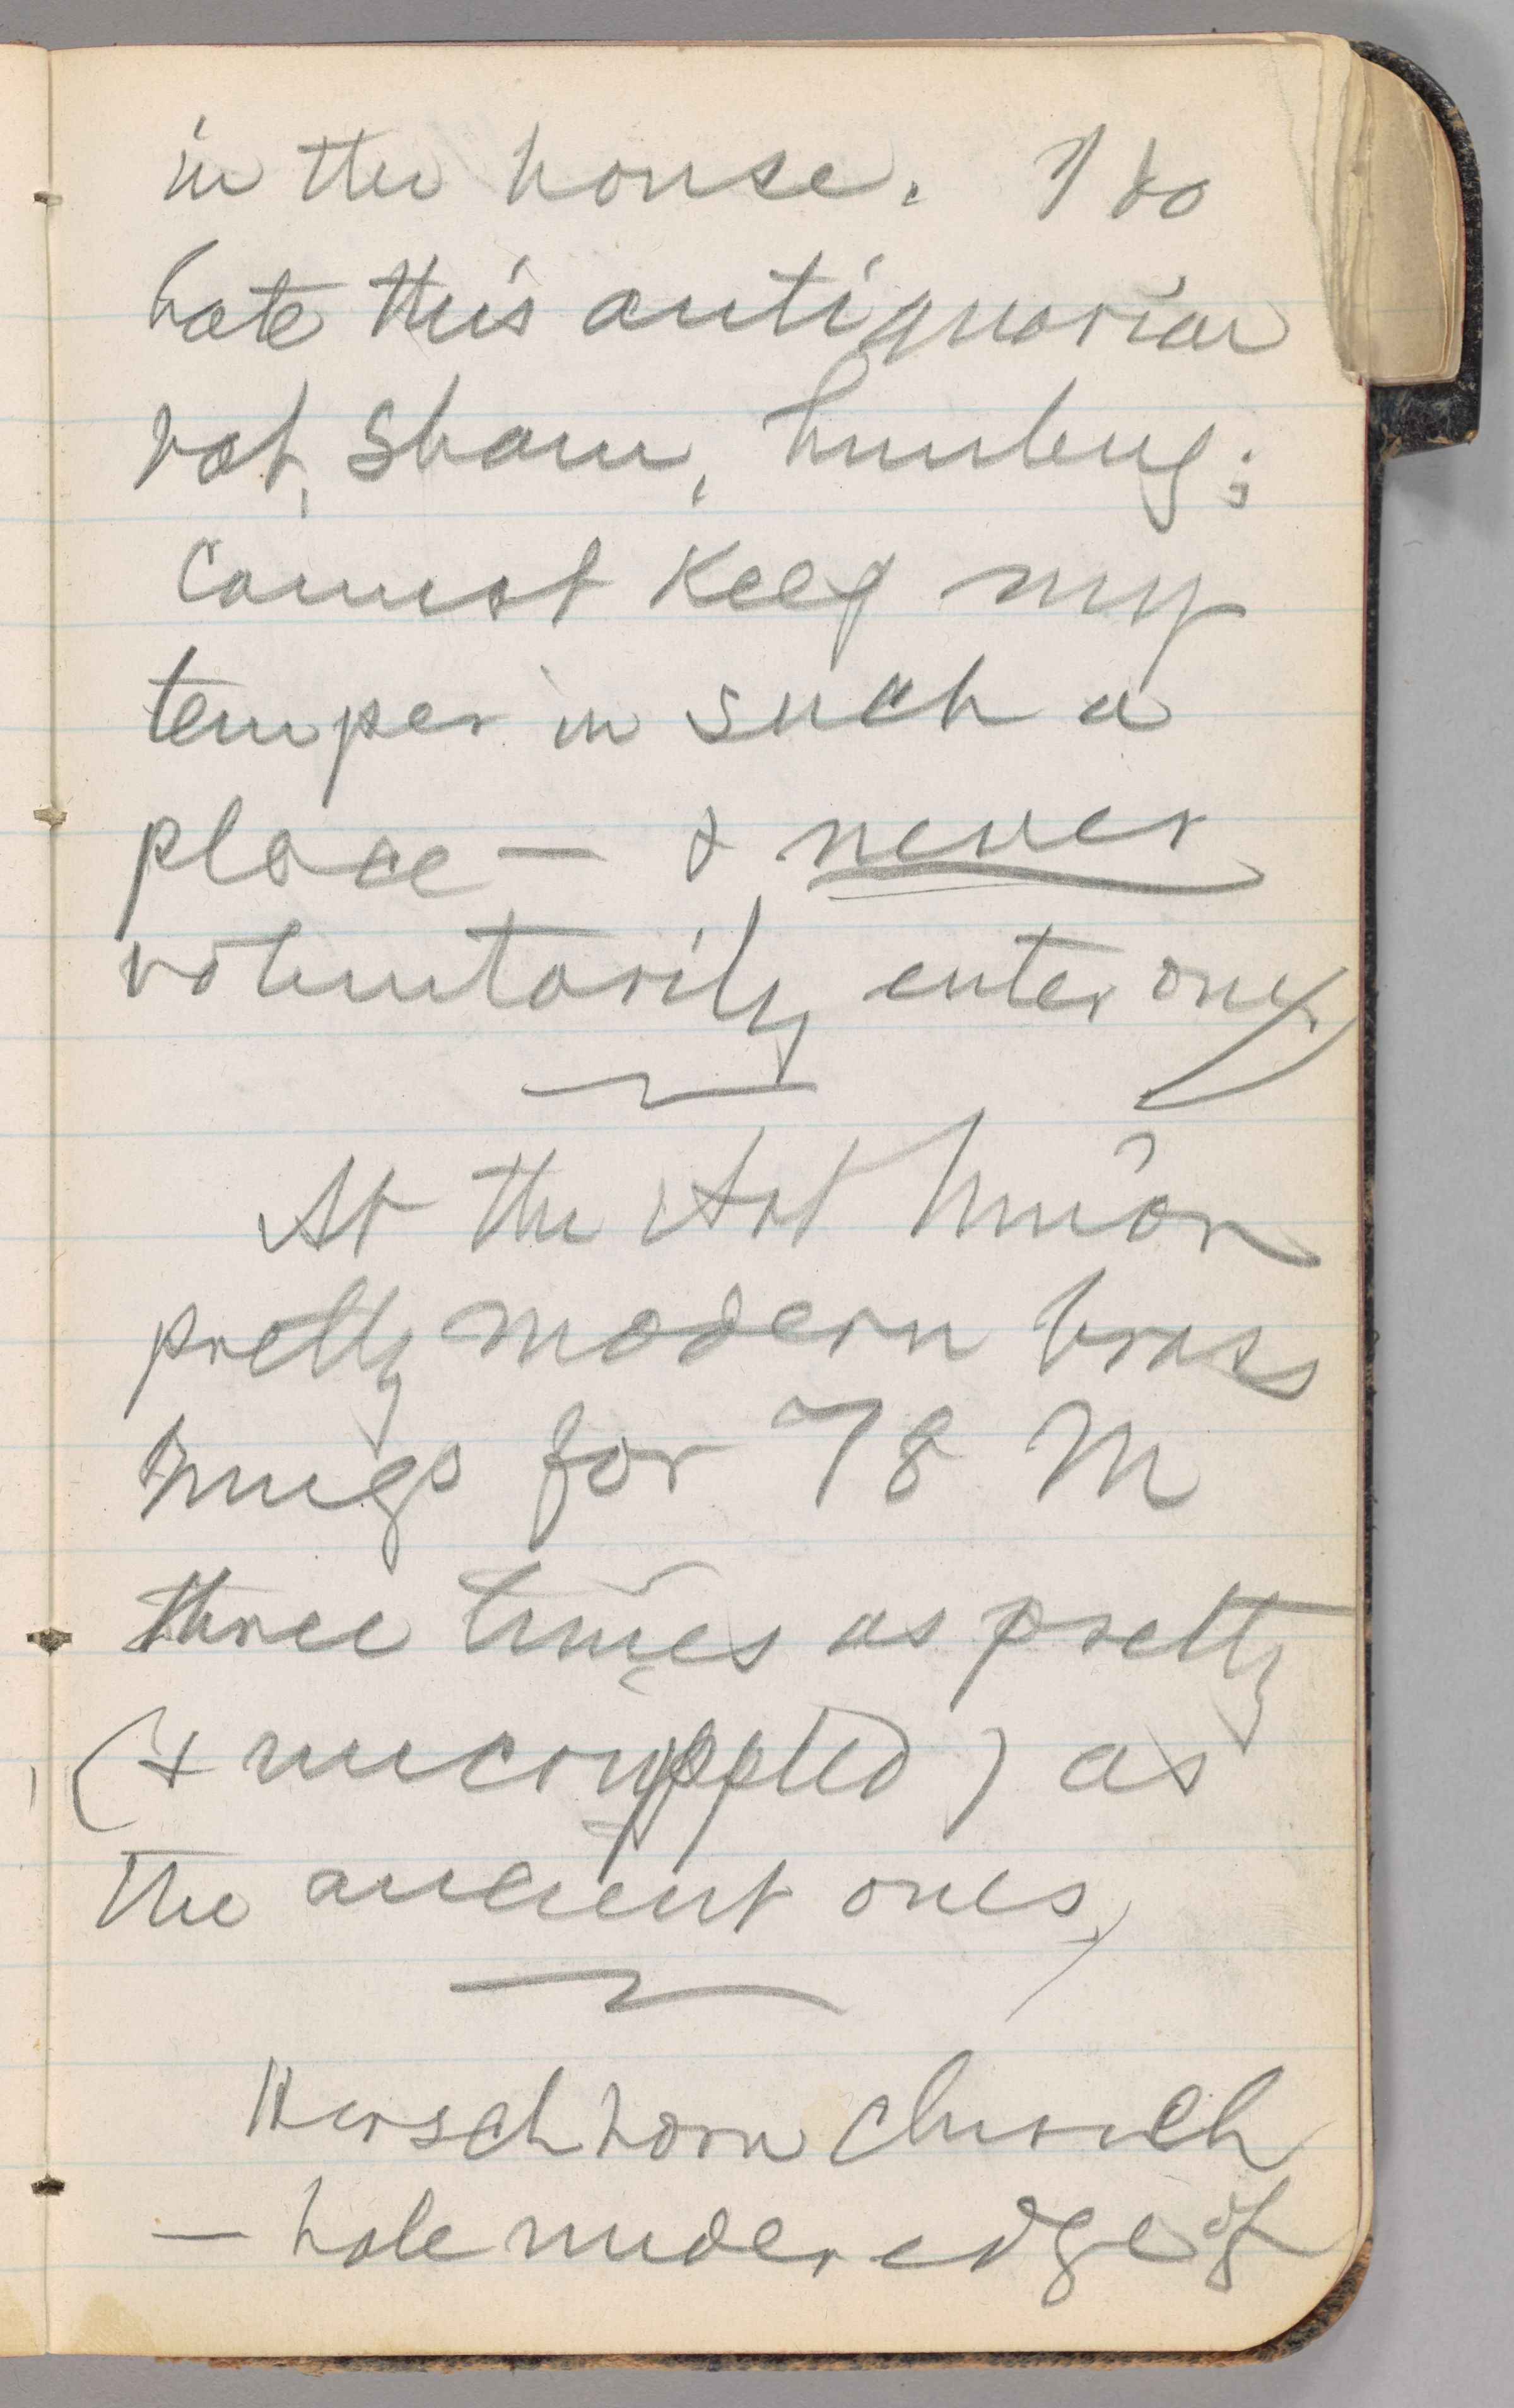 in the house. I do
hate this antiquarian
rot, sham, humbug;
cannot keep my
temper in such a
place — & never
voluntarily enter one.
At the Art Union
pretty modern brass
mugs for 78 M
three times as pretty
(& uncrippled) as
the ancient ones,
Hirschhorn church
— hole under edge of